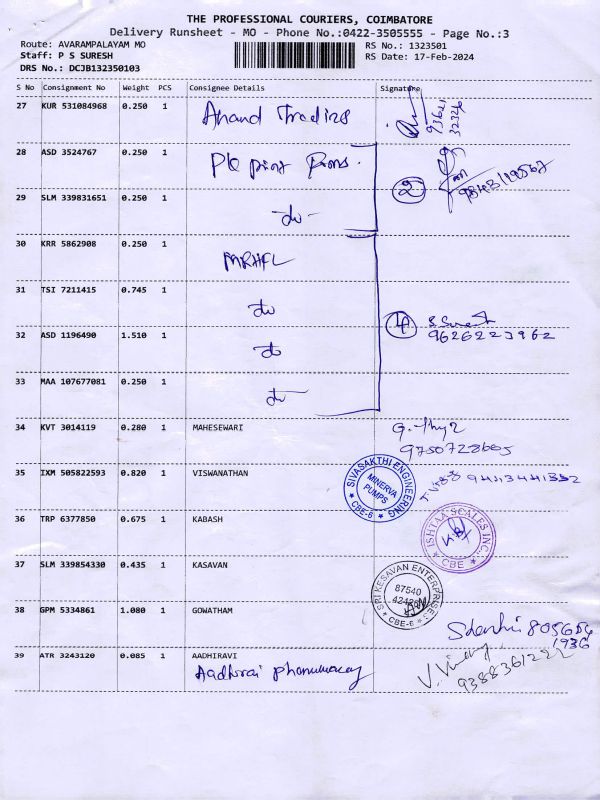 THE PROFESSIONAL COURIERS, COIMBATORE
Delivery Runsheet - MO - Phone No.:0422-3505555 - Page No.:3
Route: AVARAMPALAYAM MO
RS No.: 1323501
Staff: P S SURESH
RS Date: 17-Feb-2024
DRS No.: DCJB132350103
S No Consignment No Weight PCS Consignee Details Signature
27 KUR 531084968 0.250 1 Anand
93621
32326
28 ASD 3524767 0.250 1
29 SLM 339831651 0.250 1 do -
2
30 KRR 5862908 0.250 1 MRHFL
31 TSI 7211415 0.745 1 do
32 ASD 1196490 1.510 1 do
4 S Suresh
9626223962
33 MAA 107677081 0.250 1 do
34 KVT 3014119 0.280 1 MAHESEWARI
35 IXM 505822593 0.820 1 VISWANATHAN
SIVASAKTHI ENGINEERING
MINERVA
PUMPS
CBE-6
36 TRP 6377850 0.675 1 KABASH
ISHTAA SCALES INC.,
CBE
37 SLM 339854330 0.435 1 KASAVAN
SRI KESAVAN ENTERPRISES
87540
CBE-6
38 GPM 5334861 1.080 1 GOWATHAM
805654
1936
39 ATR 3243120 0.085 1 AADHIRAVI
Aadhirai
9388361222